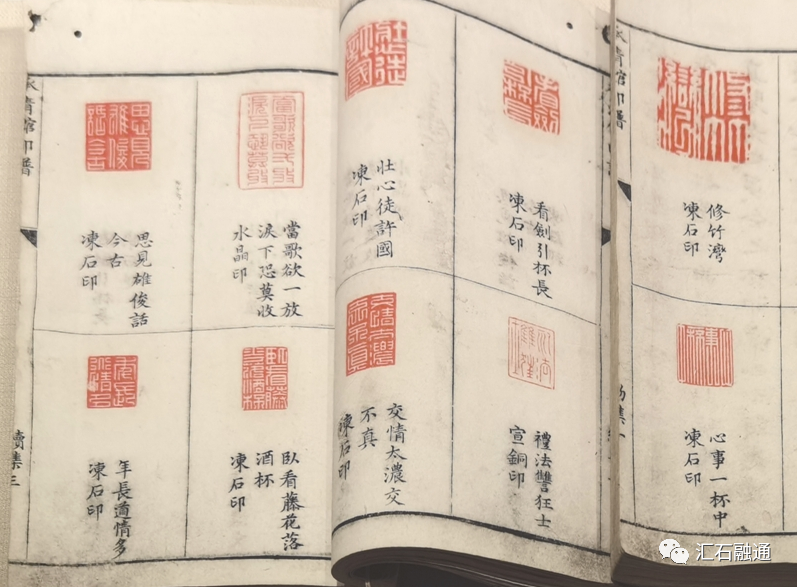 修竹灣
凍石印
心事一杯中
凍石印
承清館印譜
看劍引杯長
凍石印
禮法讐狂士
宣銅印
壯心徒許國
凍石印
交情太濃交
不真
凍石印
當歌欲一放
淚下恐莫收
水晶印
臥看藤花落
酒杯
凍石印
思見雄俊話
今古
凍石印
年長道情多
凍石印
承清館印譜
續集三
汇石融通